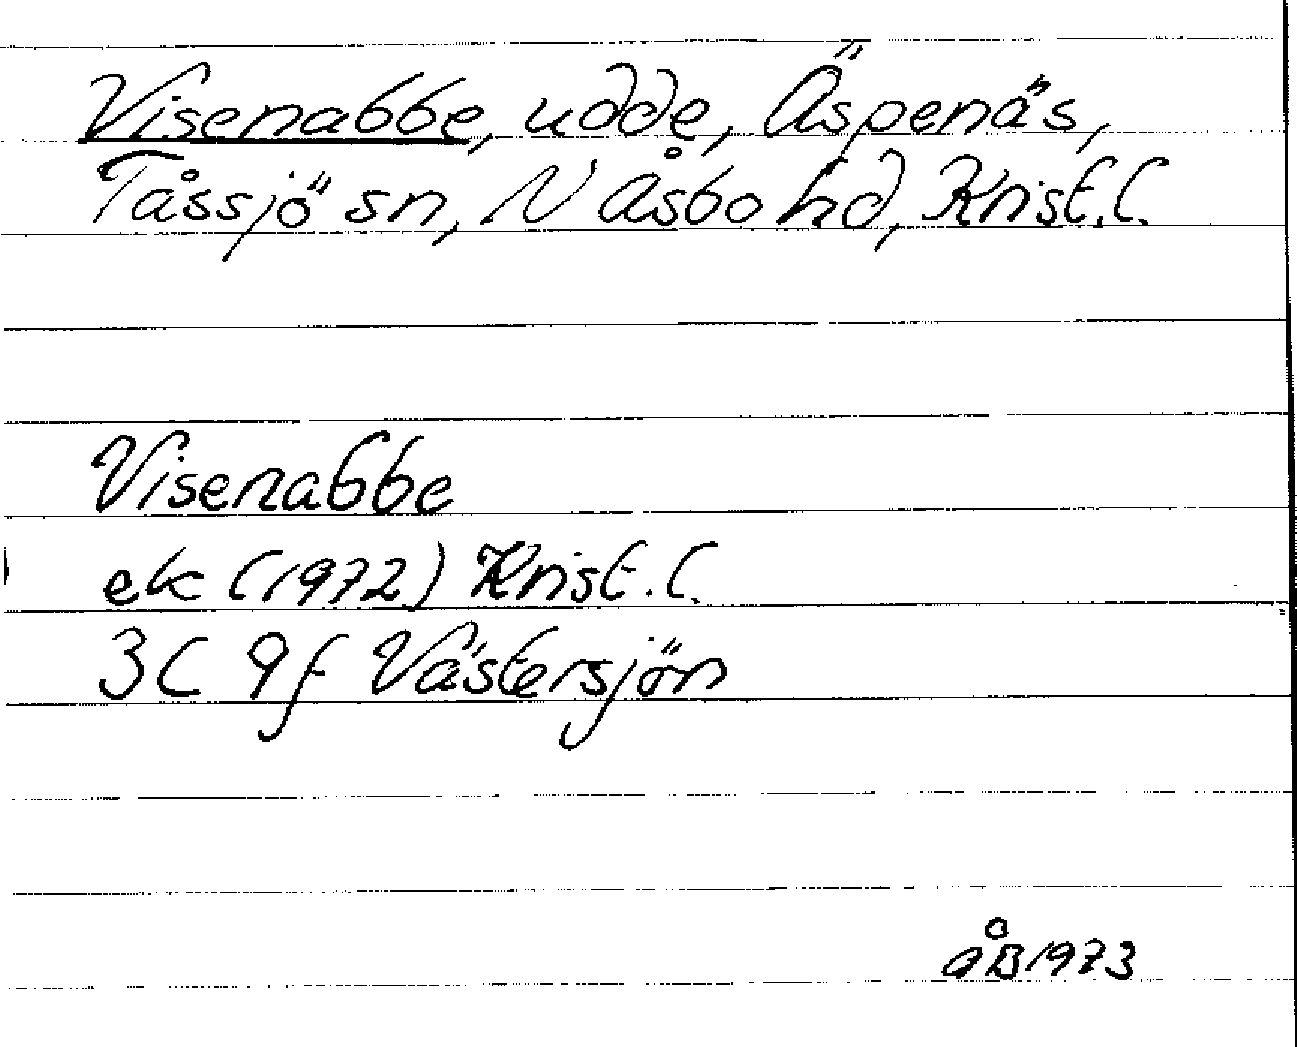 Visenabbe, udde, Äspenäs,
Tåssjö sn, N Åsbo hd, Krist.l.
Visenabbe
ek (1972) Krist.l.
3C 9f Västersjön
åB 1973